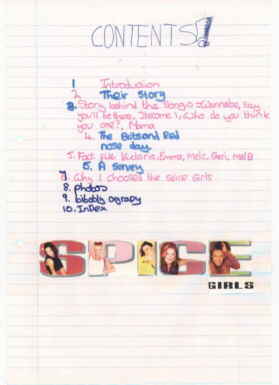 CONTENTS!
1 Introduction
2 Their Story
3. Story behind the songs: Wannabe, Say
you'll be there, 2become 1, Who do you think
you are?, Mama
4. The Brits and Red
nose day
5. Fact file Victoria, Emma, Mel C, Geri, Mel B
6. A Survey
7. Why I chooses the Spice Girls
8. photos
9. bibably ograpy
10. Index
SPICE
GIRLS